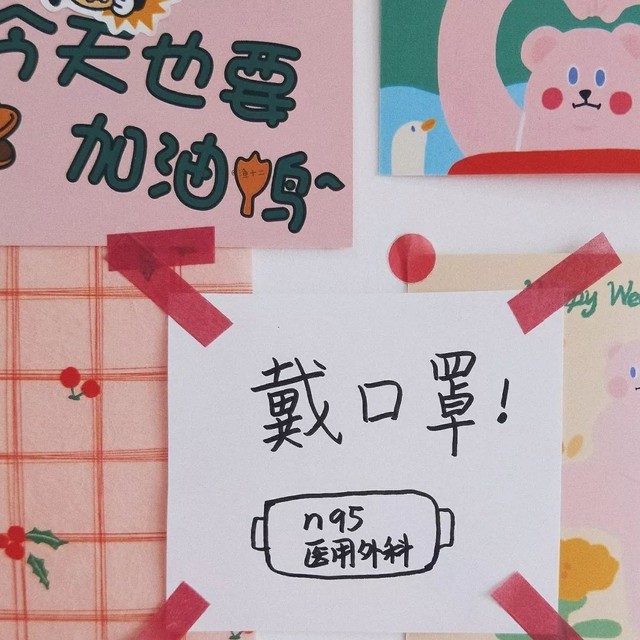 今天也要
加油鸭~
Happy We
戴口罩!
n95
医用外科